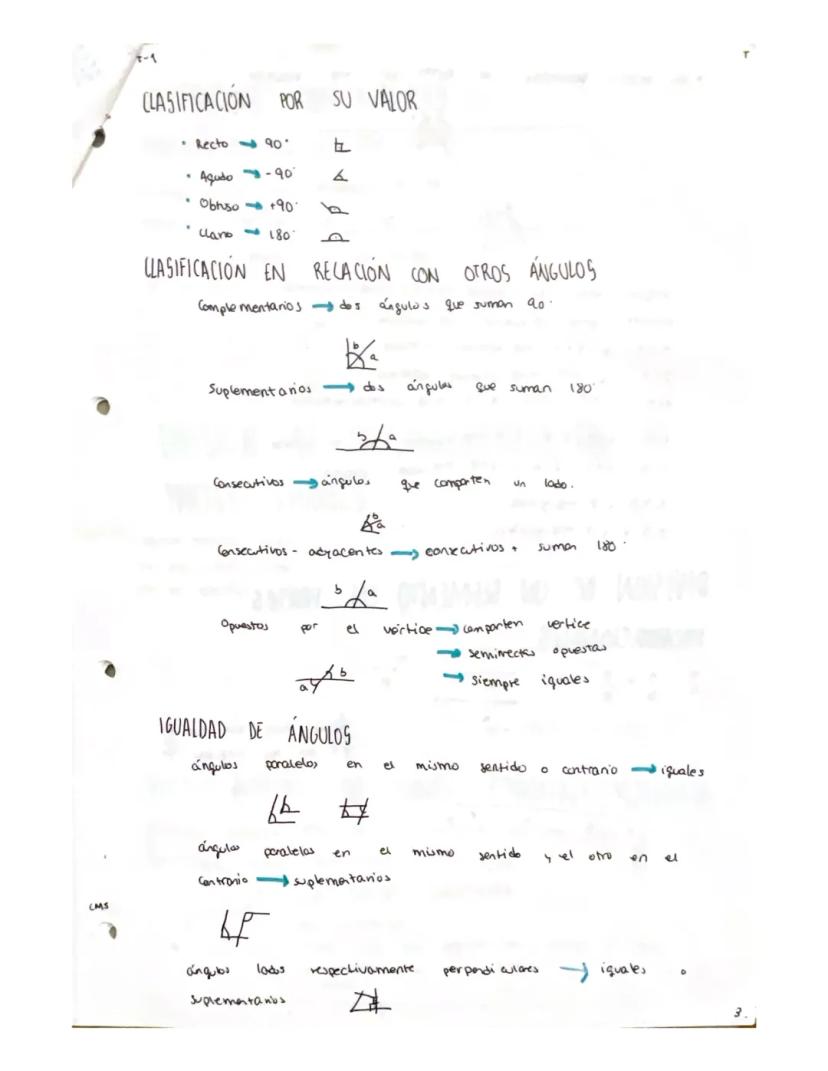 T-1
T
CLASIFICACIÓN POR SU VALOR
• Recto → 90°
• Agudo → -90°
• Obtuso → +90°
• Llano → 180°
CLASIFICACIÓN EN RELACIÓN CON OTROS ÁNGULOS
Complementarios → dos ángulos que suman 90°
b
a
Suplementarios → dos ángulos que suman 180°
b a
Consecutivos → ángulos que comparten un lado.
b
a
Consecutivos - adyacentes → consecutivos + suman 180°
b a
Opuestos por el vértice → comparten vértice
→ semirrectas opuestas
a b
→ siempre iguales
IGUALDAD DE ÁNGULOS
ángulos paralelos en el mismo sentido o contrario → iguales
ángulos paralelos en el mismo sentido y el otro en el
contrario → suplementarios
CMS
ángulos lados respectivamente perpendiculares → iguales o
suplementarios
3.